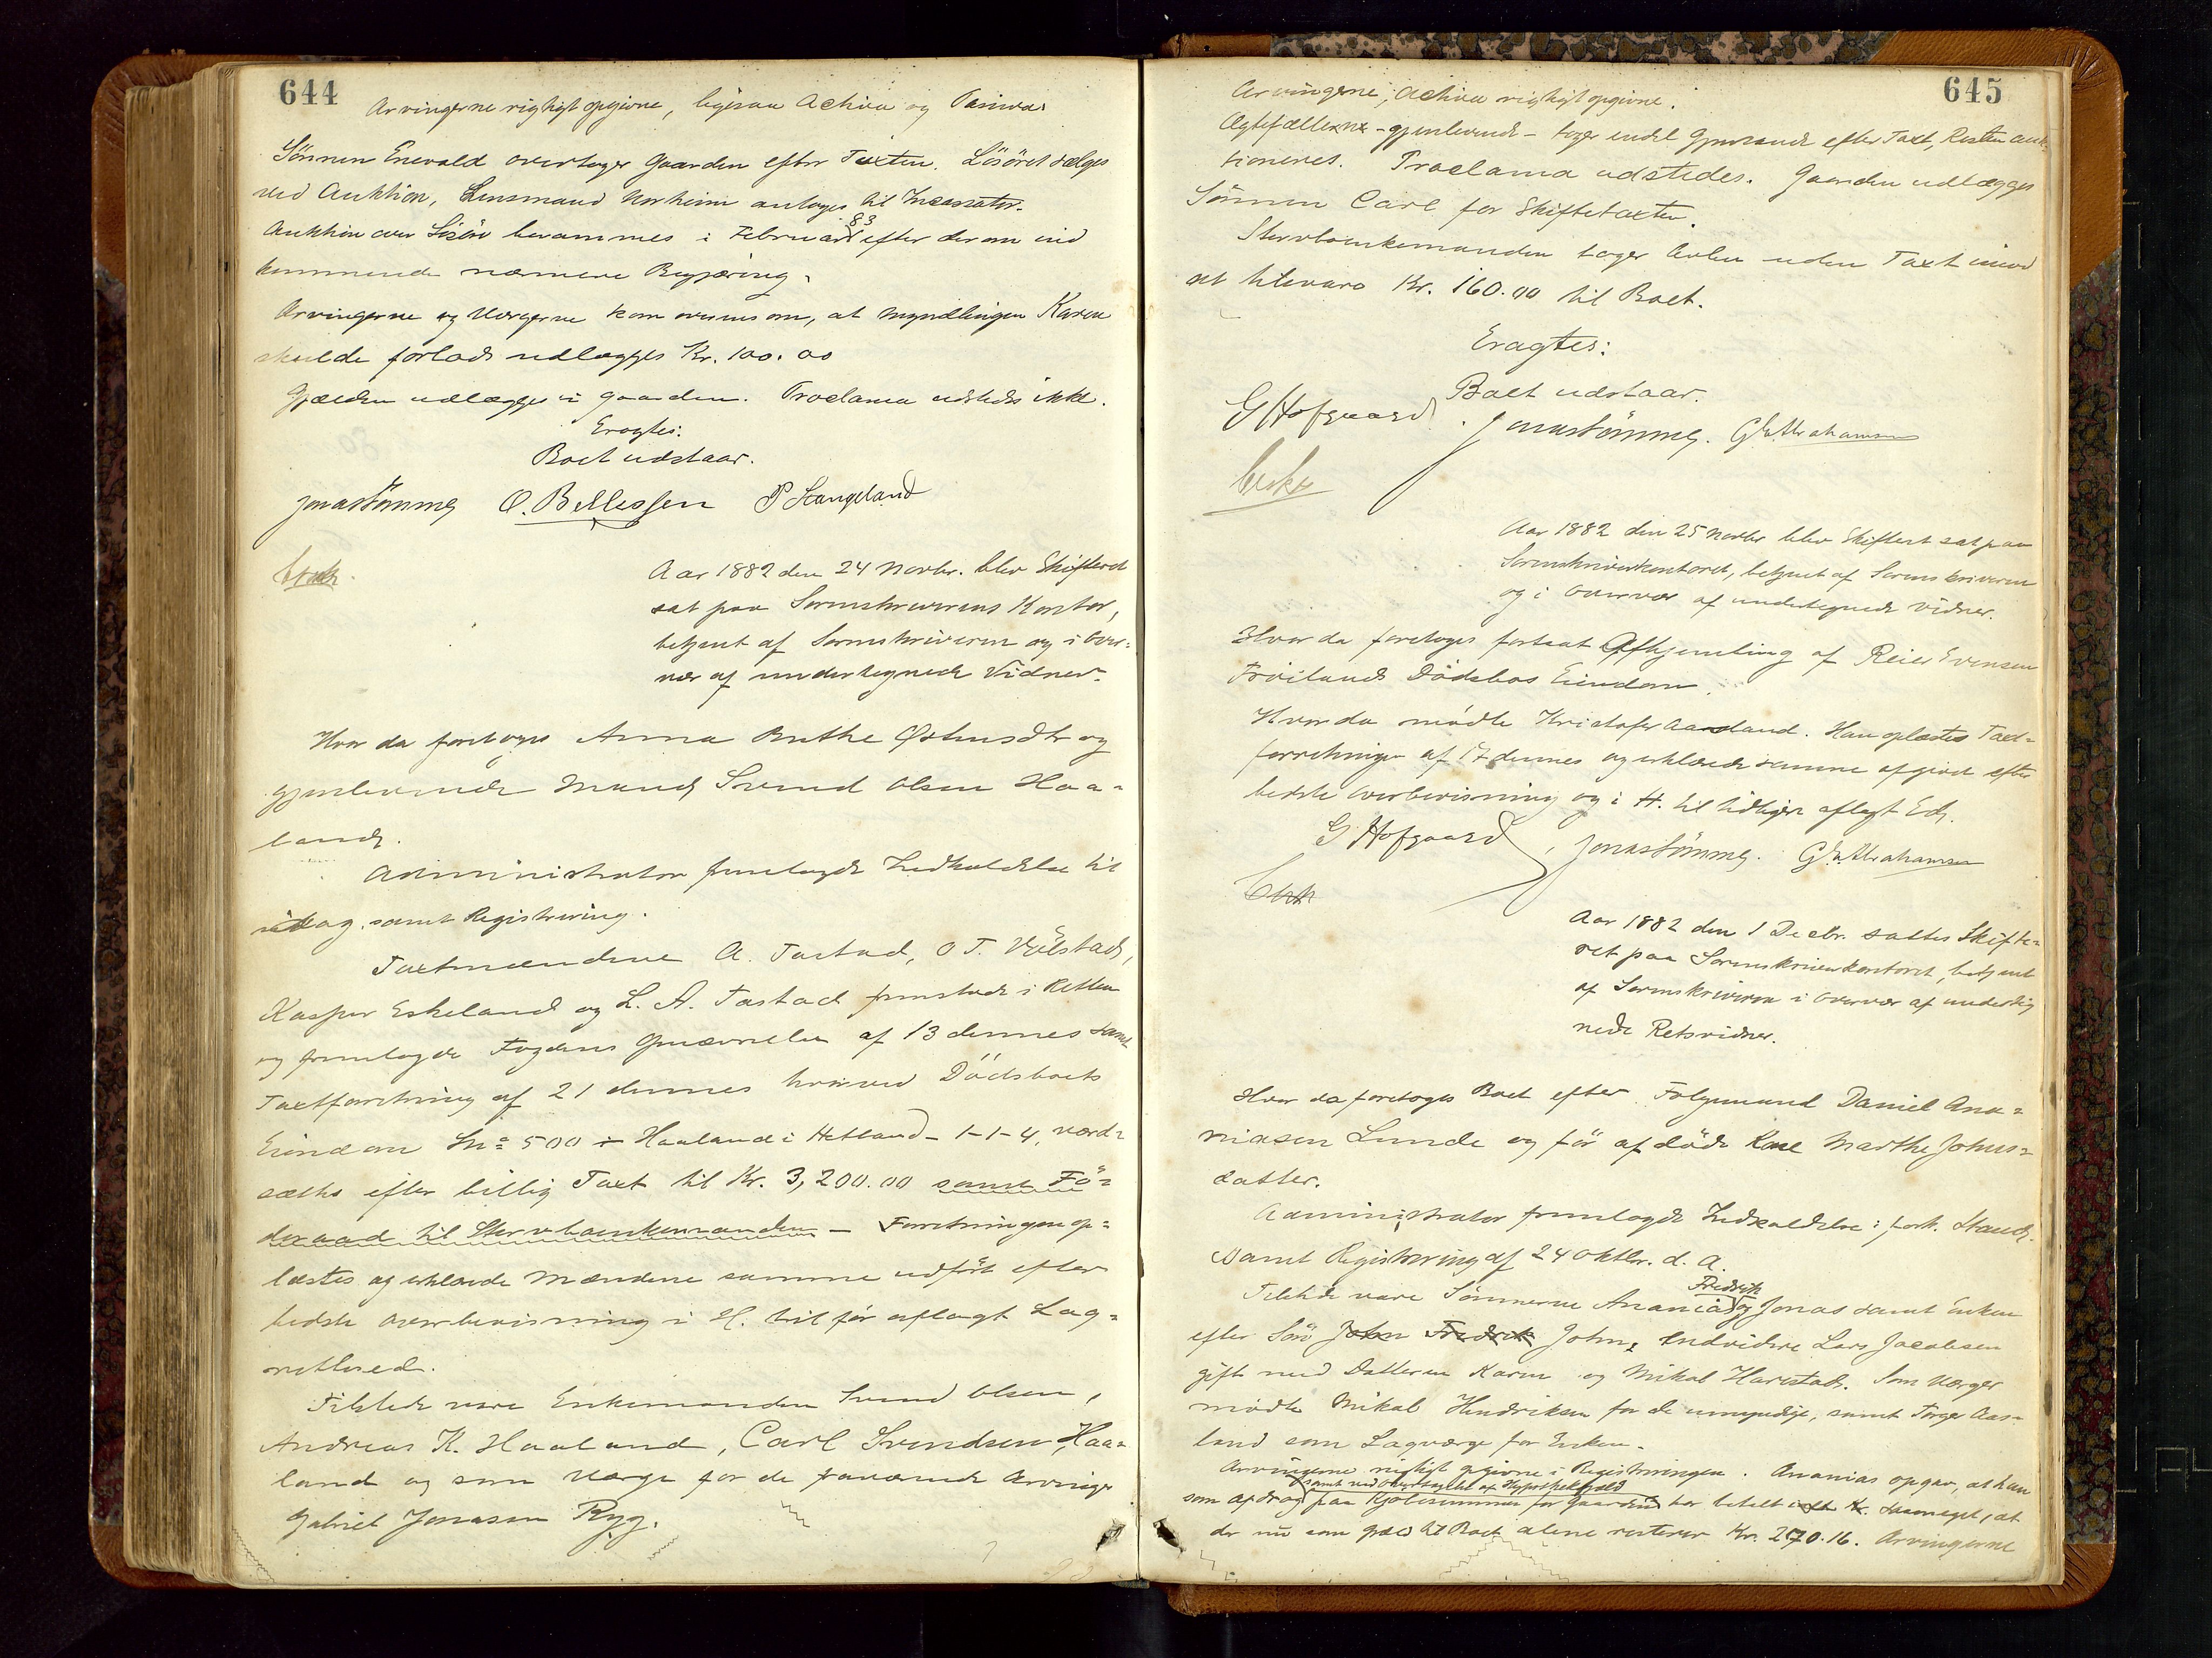 644
Arvingerne rigtigt opgivne, ligesaa Activa og Passiva.
Sönnen Enevald overtager Gaarden efter Taxten. Lösöret sælges
ved Auktion, Lensmand Norheim antages til Incassator.
83
Auktion over Lösöre berammes i Februar efter derom ind
kommende nærmere Begjæring.
Arvingerne og Værgerne kom overens om, at Myndlingen Karen
skulde forlods udlægges Kr. 100.00
Gjælden udlægges i Gaarden. Proclama udstedes ikke.
Eragtes:
Boet udstaar.
Jonas Tömmes O. B. P Stangeland
Aar 1882 den 24 Novbr. blev Skifteret
sat paa Sorenskriverens Kontor,
betjent af Sorenskriveren og i Over-
vær af undertegnede Vidner.
Hvor da foretoges Anna Berthe Østensdtr og
gjenlevende Mand Svend Olsen Haa-
land.
Administrator fremlagde Indkaldelse til
idag samt Registrering.
Taxtmændene A. Tastad, O T. Vølstad,
Kasper Eskeland og L. A. Tastad fremstode i Retten
og fremlagde Fogdens Opnævnelse af 13 dennes samt
Taxtforretning af 21 dennes hvorved Dödsboets
Eiendom Ln: 500 i Haaland i Hetland - 1-1-4, værd-
sættes efter billig Taxt til Kr. 3,200.00 samt Fö-
deraad til Stervboenkemanden - Forretningen op-
læstes og erklærede Mændene samme udfört efter
bedste Overbevisning i H. til för aflagt Lag-
retteed.
Tilstede vare Enkemanden Svend Olsen,
Andreas K. Haaland, Carl Svendsen Haa-
land og som Værge for de fraværende Arvinger
Gabriel Jonasen Ryg.
645
Arvingerne, Activa rigtigt opgivne.
Ægtefællerne - gjenlevende - tager endel Gjenstande efter Taxt, Resten auk-
tioneres. Proclama udstedes. Gaarden udlægges
Sönnen Carl for Skiftetaxten.
Stervboenkemanden tager Avlen uden Taxt imod
at tilsvare Kr. 160.00 til Boet.
Eragtes:
Boet udstaar.
G Hofgaard. Jonas Tömmes. G. Abrahamsen
Aar 1882 den 25 Novbr blev Skifteret sat paa
Sorenskriverkontoret, betjent af Sorenskriveren
og i Overvær af undertegnede Vidner.
Hvor da foretoges fortsat Afhjemling af Reier Evensen
Fröilands Dödsbos Eiendom.
Hvor da mödte Kristofer Aarsland. Han oplæstes Taxt-
forretningen af 17 dennes og erklærede samme afgivet efter
bedste Overbevisning og i H. til tidligere aflagt Ed.
G Hofgaard, Jonas Tömmes. G. Abrahamsen
Aar 1882 den 1 Decbr. sattes Skifte-
ret paa Sorenskriverkontoret, betjent
af Sorenskriveren i Overvær af underteg
nede Retsvidner.
Hvor da foretoges Boet efter Folgemand Daniel Ana-
niasen Lunde og för afdöde Kone Marthe Johns-
datter.
Administrator fremlagde Indkaldelse i fork. Stand.
samt Registrering af 24 Oktbr. d. A.
Fredrik
Tilstede vare Sönnerne Ananias og Jonas samt Enken
efter Sön John Fredrik John, Endvidere Lars Jacobsen
gift med Datteren Karen og Mikal Harestad. Som Værger
mödte Mikal Hendriksen for de umyndige, samt Torger Aas-
land som Lagværge for Enken.
Arvingerne rigtigt opgivne i Registreringen. Ananias opgav, at han
samt ved Overtagelse af Hypothekgjæld
som afdrag paa Kjöbesummen for Gaarden har betalt Kr. saameget, at
der nu som gjæld til Boet alene resterer Kr. 270.16. Arvingerne